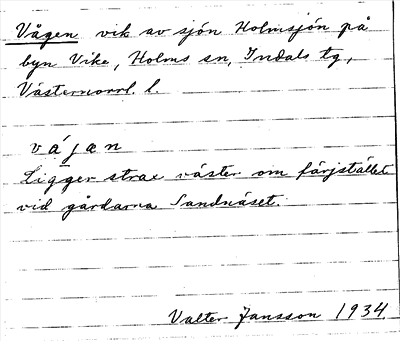 Vågen vik av sjön Holmsjön på
byn Vike, Holms sn, Indals tg,
Västernorrl. l.
våjæn
Ligger strax väster om färjstället
vid gårdarna Sandnäset.
Valter Jansson 1934